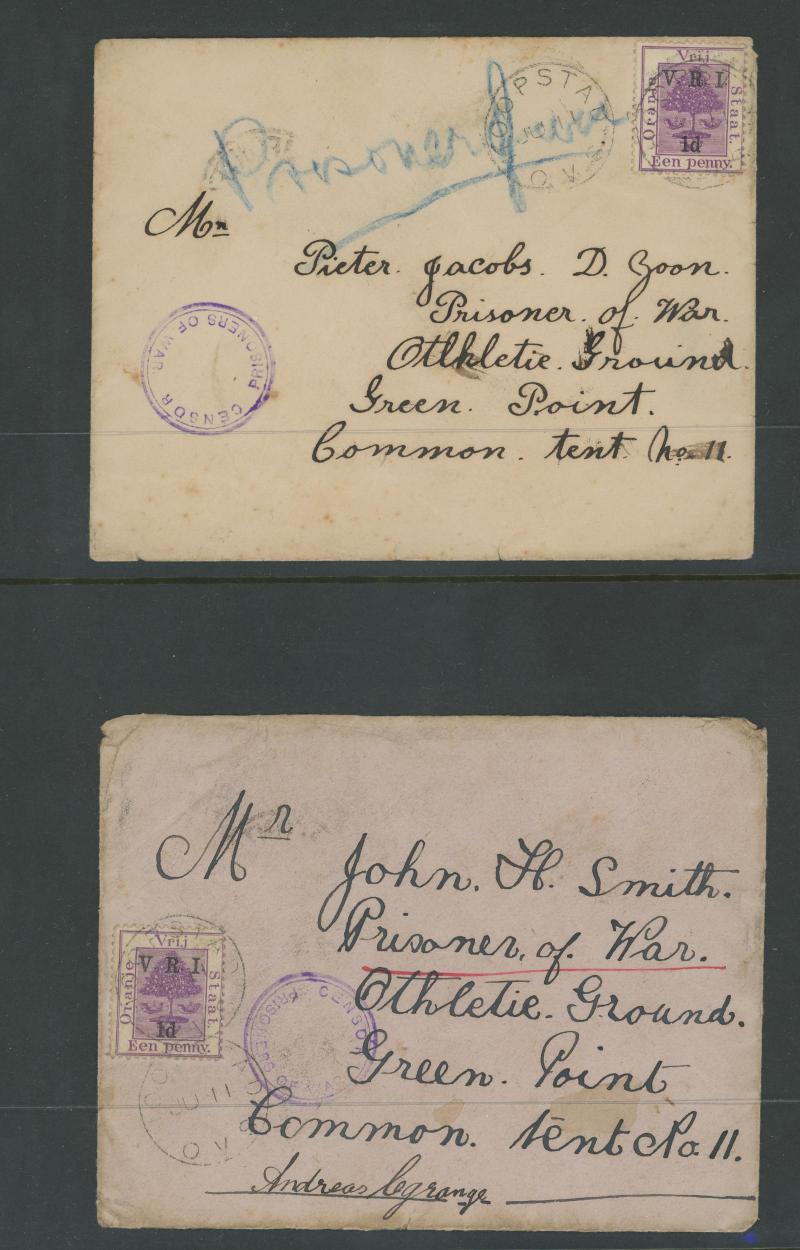 Prisoner of war
OOPSTA
JU
O V
Vrij
Oranje
Staat.
V R I
1d
Een penny.
Mr
Pieter. Jacobs. D. Zoon.
Prisoner. of. War.
Othletie. Ground.
Green. Point.
Common. tent. No. 11.
PRISONERS OF WAR
CENSOR
Mr
John. H. Smith.
Prisoner. of. War.
Othletie. Ground.
Green. Point
Common. tent No. 11.
Andreas legrange
Vrij
Oranje
Staat.
V R I
1d
Een penny.
JU 11
PRISONERS OF WAR
CENSOR